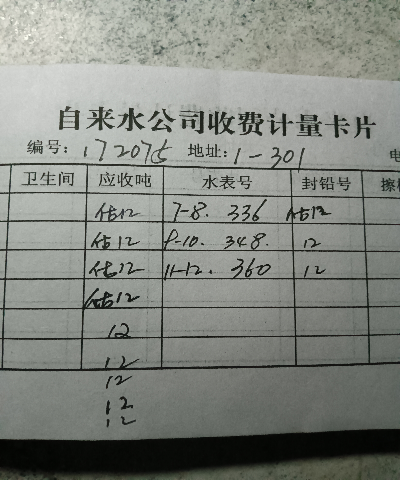 自来水公司收费计量卡片
编号: 172075 地址: 1-301 电
卫生间 应收吨 水表号 封铅号 擦
估12 7-8. 336 估12
估12 9-10. 348. 12
估12 11-12. 360 12
估12
12
12
12
12
12